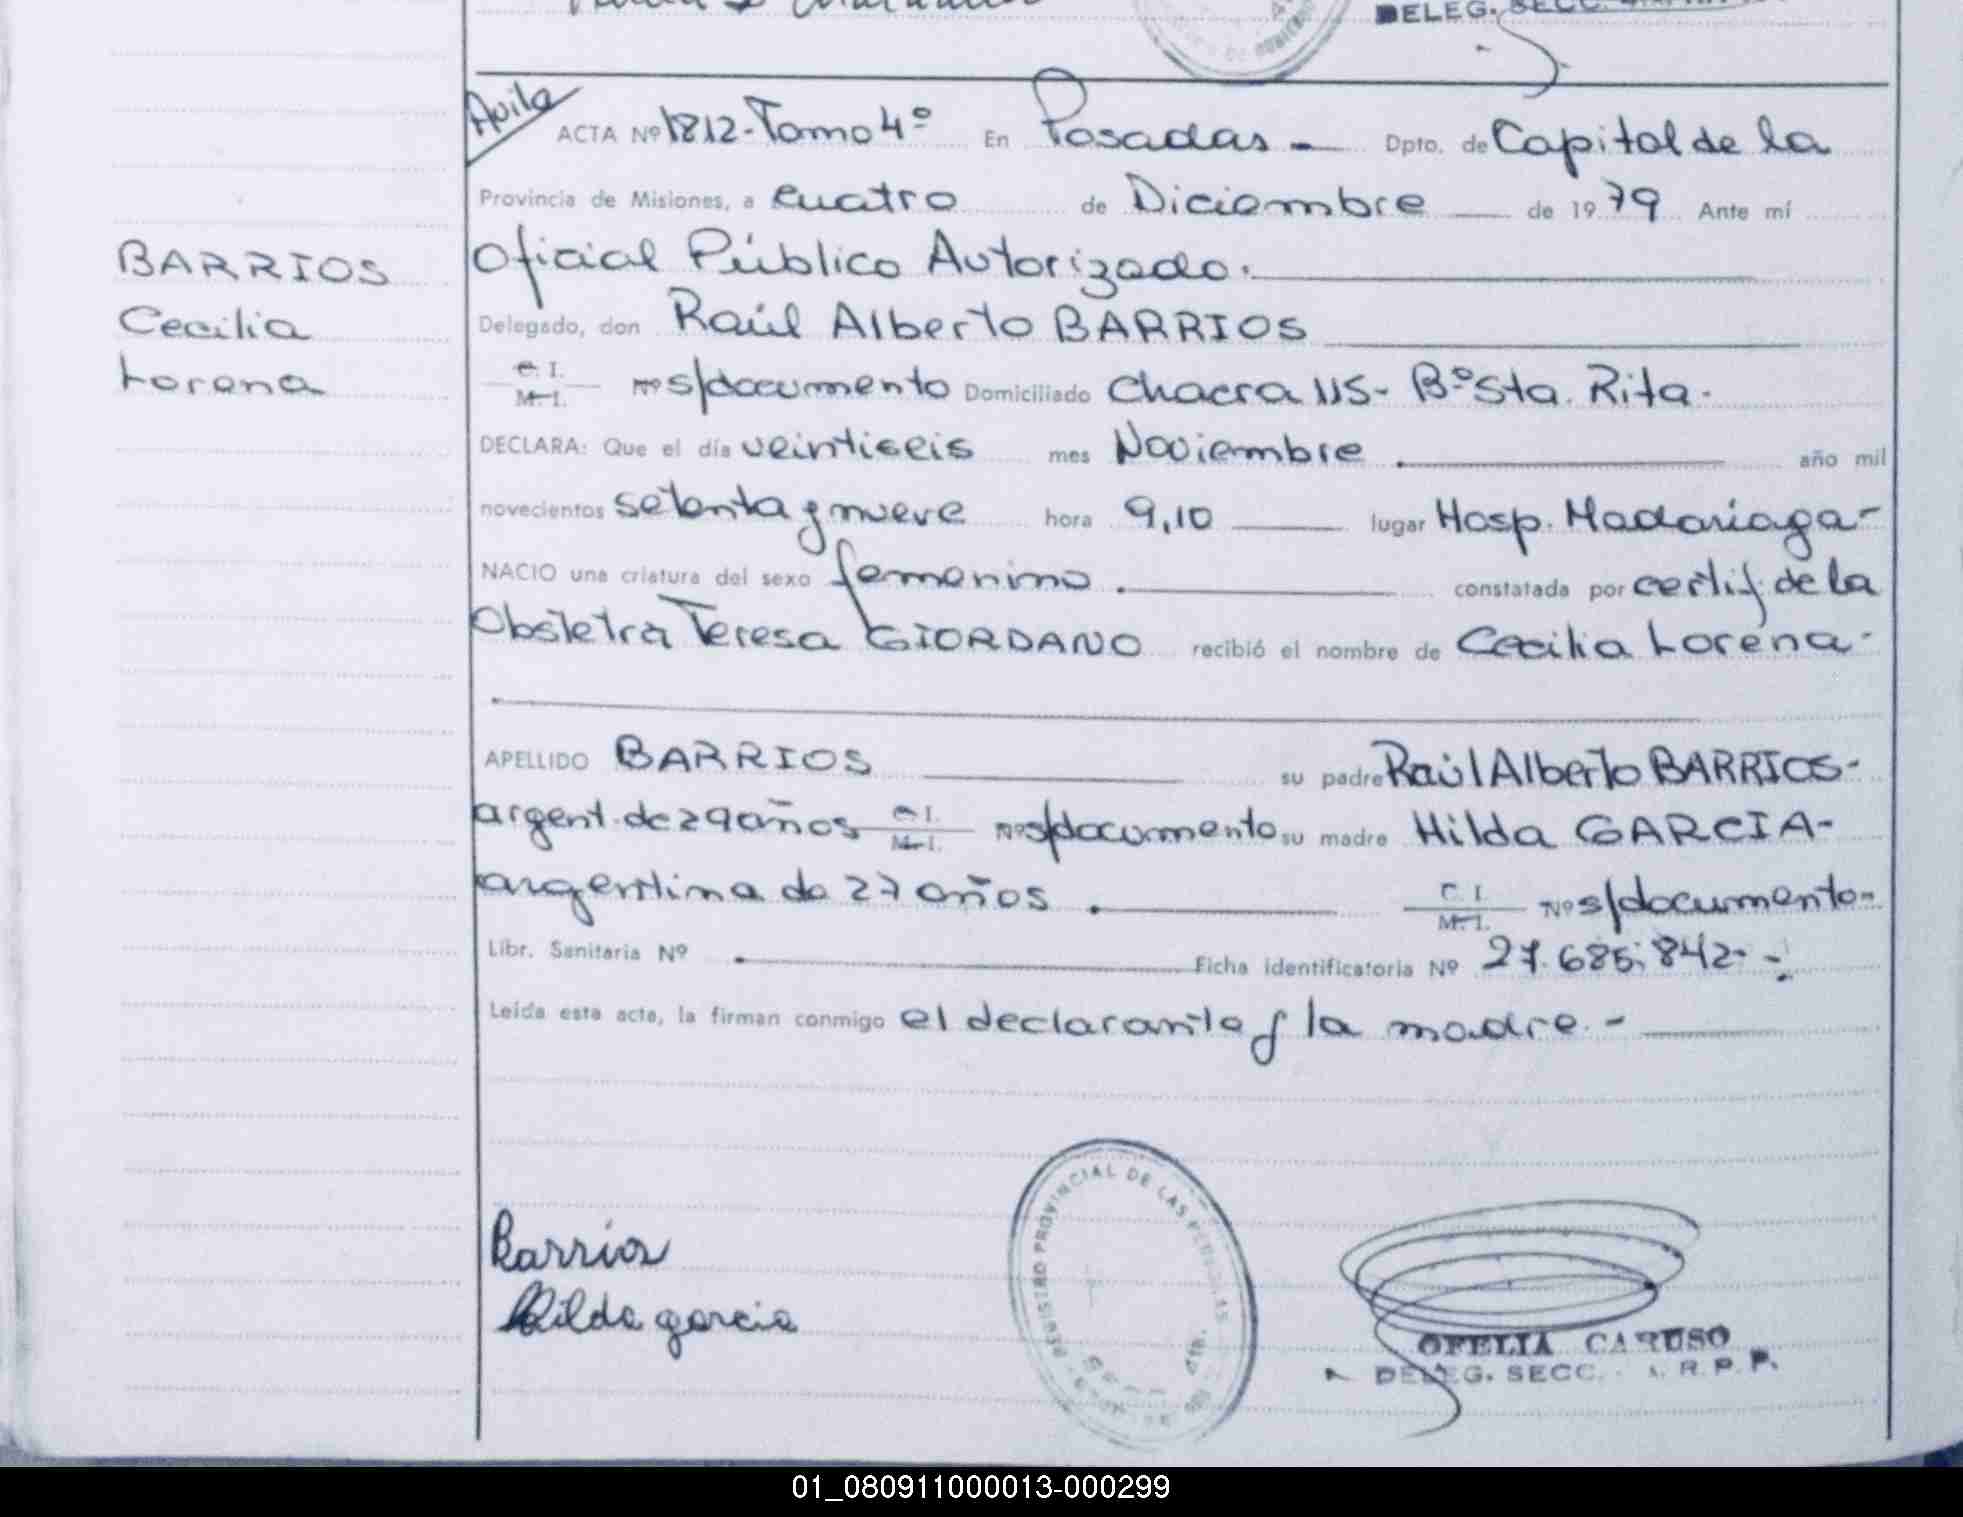 DELEG. SECC.
Avila
ACTA Nº 1812-Tomo 4º En Posadas - Dpto. de Capital de la
Provincia de Misiones, a cuatro de Diciembre de 1979 Ante mí
Oficial Público Autorizado.
BARRIOS
Cecilia
Lorena
Delegado, don Raúl Alberto BARRIOS
C. I.
M. I.
Nº s/documento Domiciliado Chacra 115- Bº Sta. Rita.
DECLARA: Que el día veintiseis mes Noviembre año mil
novecientos setenta y nueve hora 9,10 lugar Hosp. Madariaga-
NACIO una criatura del sexo femenino. constatada por certif. de la
Obstetra Teresa GIORDANO recibió el nombre de Cecilia Lorena-
APELLIDO BARRIOS su padre Raúl Alberto BARRIOS-
argent. de 29 años C. I. M. I. Nº s/documento su madre Hilda GARCIA-
argentina de 27 años. C. I. M. I. Nº s/documento-
Libr. Sanitaria Nº Ficha identificatoria Nº 27.685.842-
Leída esta acta, la firman conmigo el declarante y la madre.-
REGISTRO PROVINCIAL DE LAS PERSONAS
Barrios
Hilda garcia
OFELIA CARUSO
DELEG. SECC. R. P. P.
01_080911000013-000299